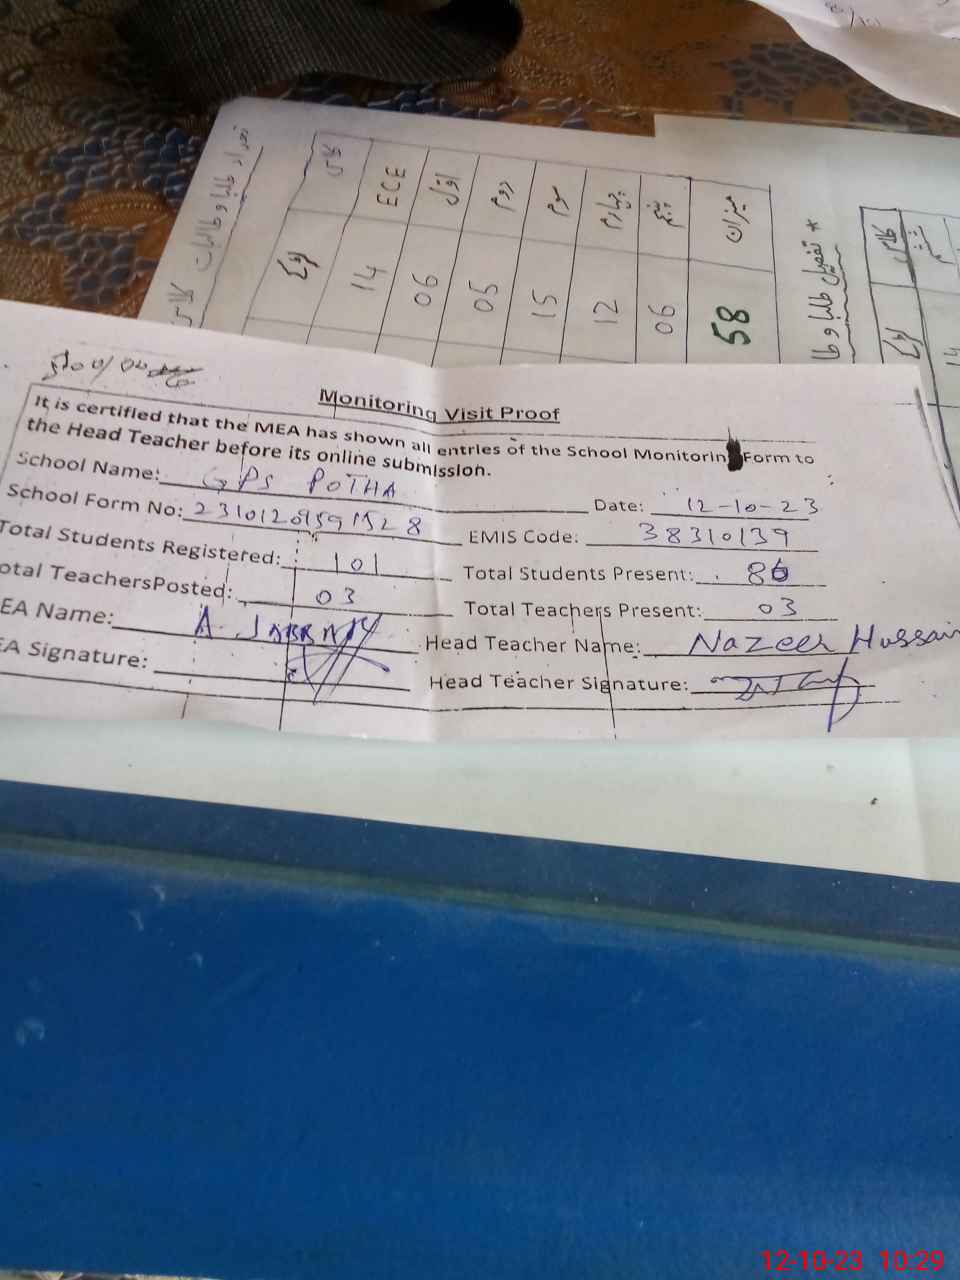 تعداد طلبا و طالبات کلاس
کلاس ECE اوّل دوم سوم چہارم پنجم میزان
لڑکے 14 06 05 15 12 06 58
* تفصیل طلبا و طا
کلاس ششم
لڑکے 14
Monitoring Visit Proof
It is certified that the MEA has shown all entries of the School Monitorin Form to
the Head Teacher before its online submission.
School Name: GPS POTHA
Date: 12-10-23
School Form No:
EMIS Code: 38310139
Total Students Registered: 101
Total Students Present: 86
otal TeachersPosted: 03
Total Teachers Present: 03
EA Name: A. JABBAR
Head Teacher Name: Nazeer Hussain
EA Signature:
Head Teacher Signature:
12-10-23 10:29